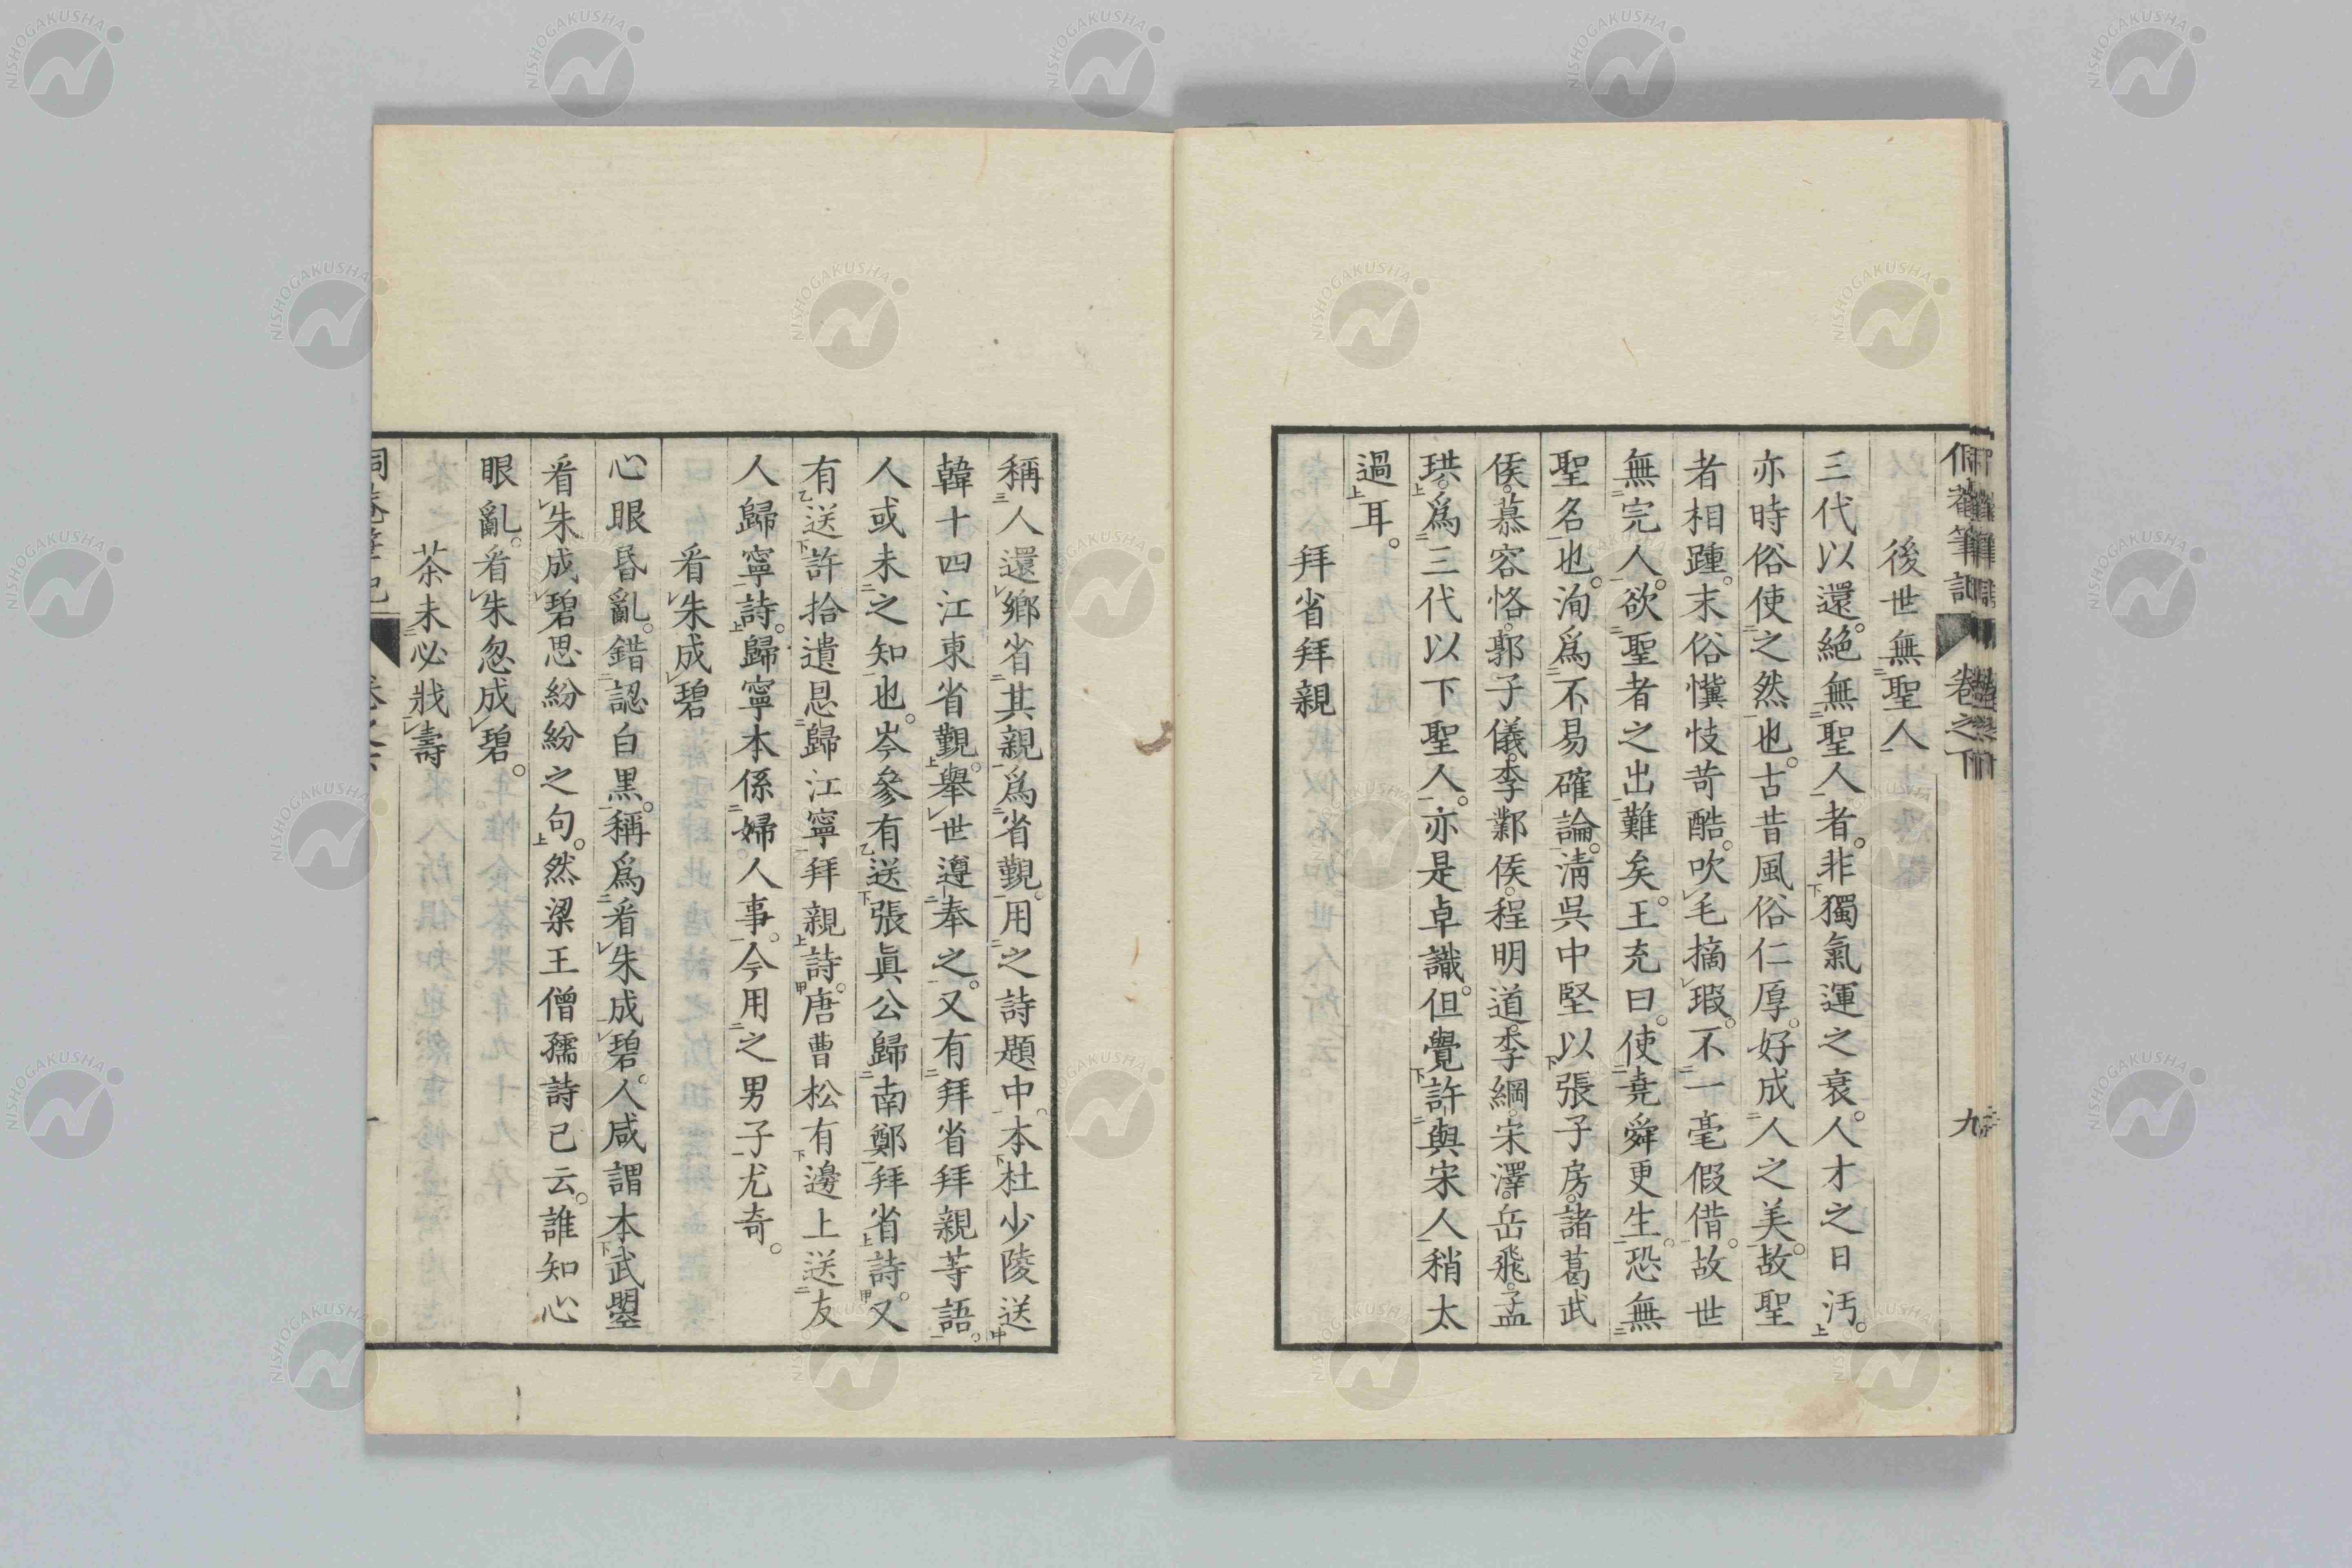 後世無聖人
三代以還。絕無聖人者。非獨氣運之衰。人才之日汚。
亦時俗使之然也。古昔風俗仁厚。好成人之美。故聖
者相踵。末俗懻忮苛酷。吹毛摘瑕。不一毫假借。故世
無完人。欲聖者之出難矣。王充曰。使堯舜更生。恐無
聖名也。洵爲不易確論。淸吳中堅以張子房。諸葛武
侯。慕容恪。郭子儀。李鄴侯。程明道。李綱。宋澤。岳飛。孟
珙。爲三代以下聖人。亦是卓識。但覺許與宋人稍太
過耳。
拜省拜親
稱人還鄕省其親爲省覲。用之詩題中。本杜少陵送
韓十四江東省覲。舉世遵奉之。又有拜省拜親等語。
人或未之知也。岑參有送張眞公歸南鄭拜省詩。又
有送許拾遺恩歸江寧拜親詩。唐曹松有邊上送友
人歸寧詩。歸寧本係婦人事。今用之男子尤奇。
看朱成碧
心眼昏亂。錯認白黑。稱爲看朱成碧。人咸謂本武曌
看朱成碧思紛紛之句。然梁王僧孺詩已云。誰知心
眼亂。看朱忽成碧。
茶未必戕壽
卷之下
九
NISHOGAKUSHA